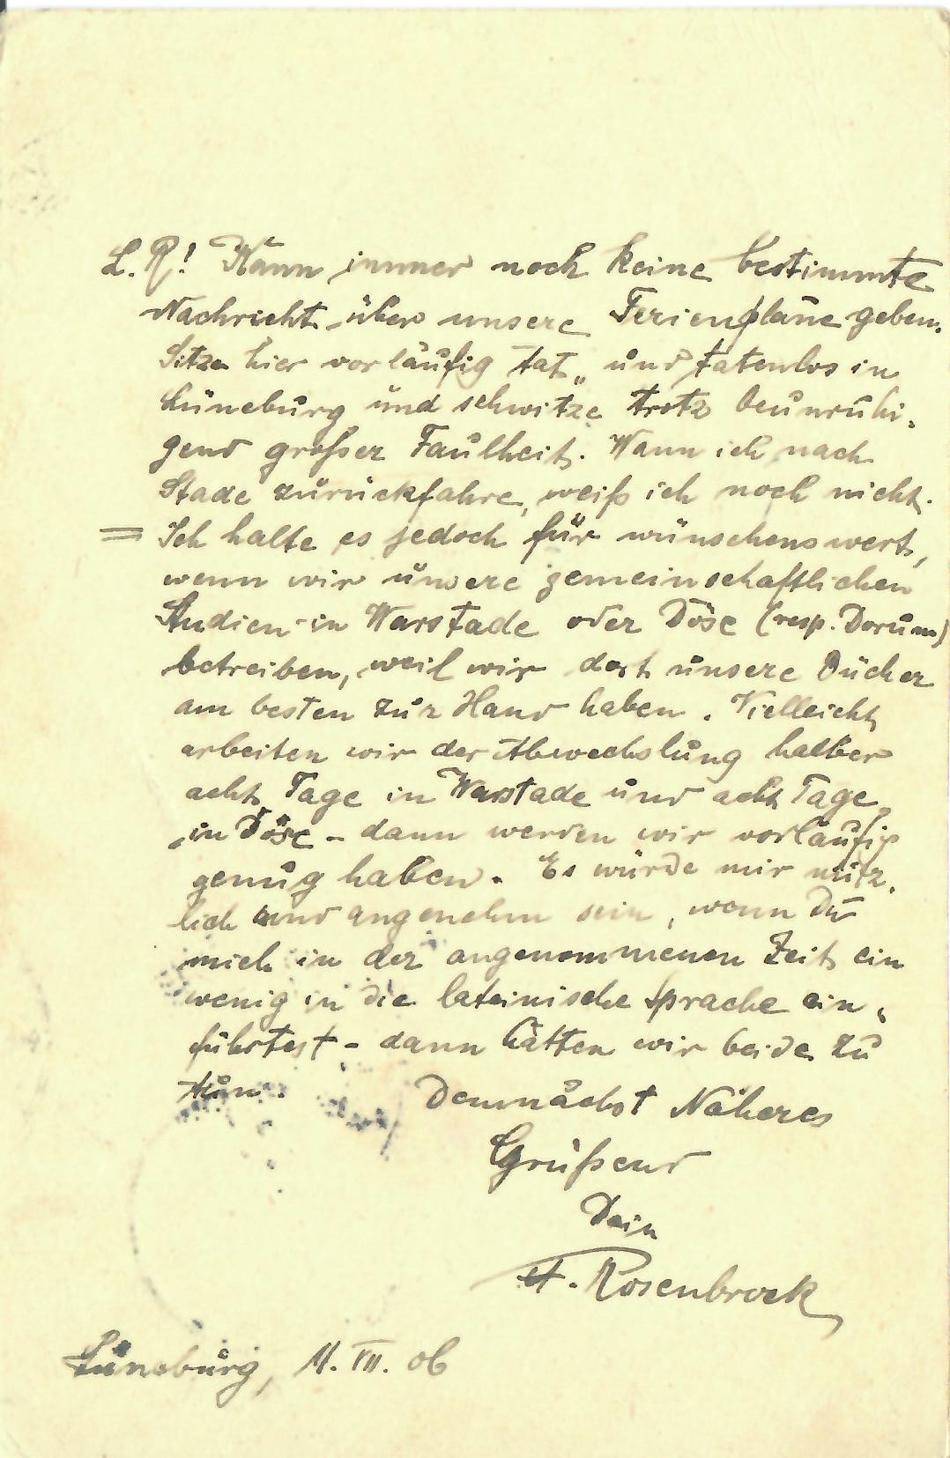 L. R! Kann immer noch keine bestimmte
Nachricht über unsere Ferienpläne geben.
Sitze hier vorläufig tat- und tatenlos in
Lüneburg und schwitze trotz beunruhi-
gend großer Faulheit. Wann ich nach
Stade zurückfahre, weiß ich noch nicht.
= Ich halte es jedoch für wünschenswert,
wenn wir unsere gemeinschaftlichen
Studien in Warstade oder Döse (resp. Dorum)
betreiben, weil wir dort unsere Bücher
am besten zur Hand haben. Vielleicht
arbeiten wir der Abwechslung halber
acht Tage in Warstade und acht Tage
in Döse - dann werden wir vorläufig
genug haben. Es würde mir nütz-
lich und angenehm sein, wenn Du
mich in der angenommenen Zeit ein
wenig in die lateinische Sprache ein-
führtest - dann hätten wir beide zu
tun. Demnächst Näheres
Grüßend
Dein
A. Rosenbrock
Lüneburg, 11. VII. 06